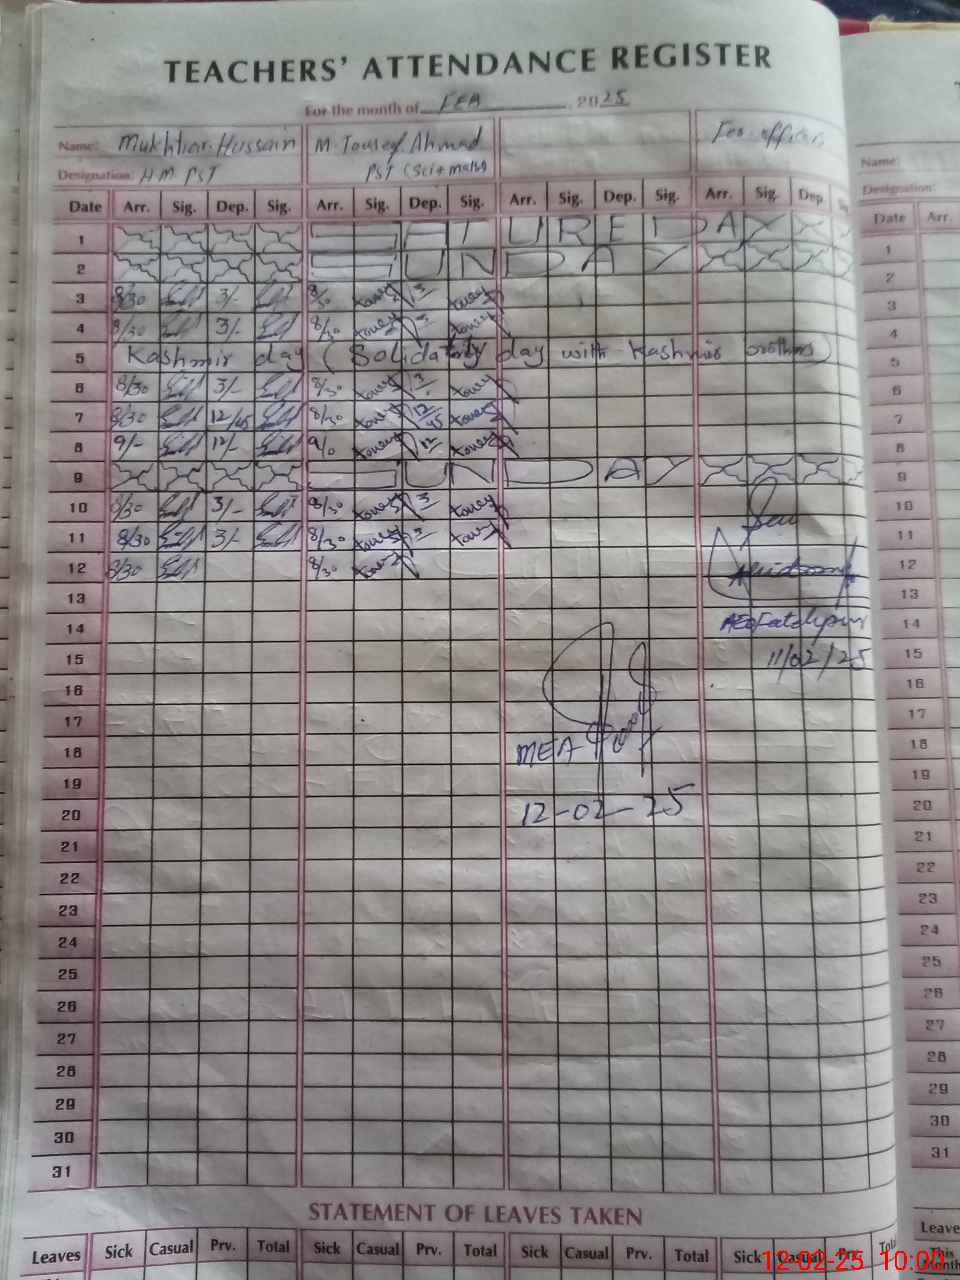 TEACHERS' ATTENDANCE REGISTER
For the month of FEB, 2025
Name: Mukhtiar Hussain M. Tousef Ahmad For officers
Designation: H.M PST PST (Sci+math)
Date Arr. Sig. Dep. Sig. Arr. Sig. Dep. Sig. Arr. Sig. Dep. Sig. Arr. Sig. Dep
1 SATUREDAY
2 SUNDAY
3 8/30 3/- 8/30 3
4 8/30 3/- 8/30 3
5 Kashmir day (Solidarity day with Kashmir brothers)
6 8/30 3/- 8/30 3
7 8/30 12/45 8/30 12/45
8 9/- 12/- 9/0 12
9 SUNDAY
10 8/30 3/- 8/30 3
11 8/30 3/- 8/30 3
12 8/30 8/30
13
14 AEO Fatehpur
15 11/02/25
16
17
18 MEA
19
20 12-02-25
21
22
23
24
25
26
27
28
29
30
31
STATEMENT OF LEAVES TAKEN
Leaves Sick Casual Prv. Total Sick Casual Prv. Total Sick Casual Prv. Total Sick Casual Prv.
Name:
Designation:
Date Arr.
1
2
3
4
5
6
7
8
9
10
11
12
13
14
15
16
17
18
19
20
21
22
23
24
25
26
27
28
29
30
31
Leaves
12-02-25 10:00